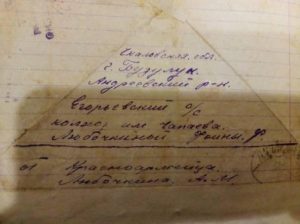 Чкаловская обл.
г. Бузулук.
Андреевский р-н.
Егорьевский с/с
колхоз им Чапаева
Любочкиной Фоины. Ф
от Красноармейца.
Любочкина. А. М.